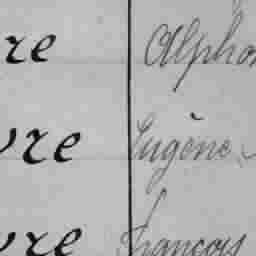 re Alphon
vre Eugène
vre François